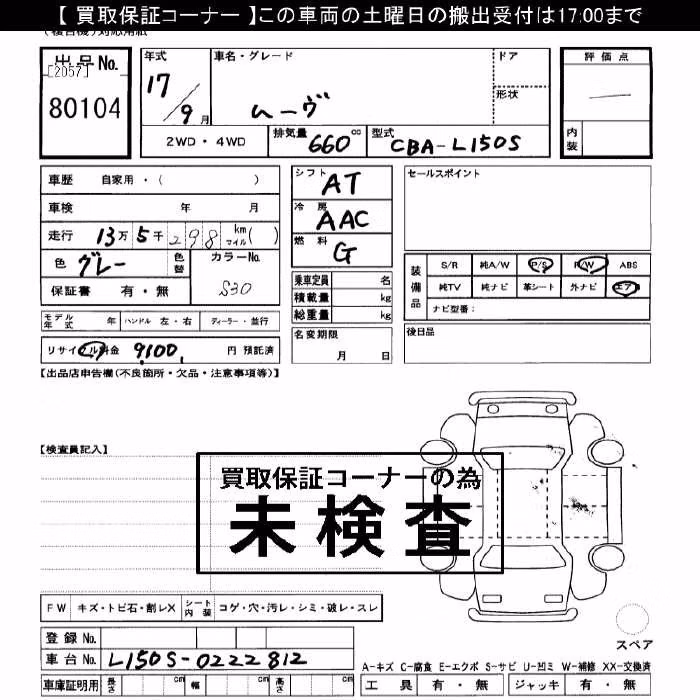 【 買取保証コーナー 】この車両の土曜日の搬出受付は17:00まで
出品No.
[2057]
80104
年式
17/9月
車名・グレード
ムーヴ
ドア
形状
評価点
内装
2WD・4WD
排気量 660 cc
型式 CBA-L150S
車歴 自家用・( )
車検 年 月
走行 13万5千298 km マイル( )
色 グレー
色替
カラーNo.
S30
保証書 有・無
シフト AT
冷房 AAC
燃料 G
乗車定員 名
積載量 kg
総重量 kg
セールスポイント
装備品
S/R 純A/W P/S P/W ABS
純TV 純ナビ 革シート 外ナビ エアB
ナビ型番:
モデル年式 年 ハンドル 左・右 ディーラー・並行
名変期限
月 日
後日品
リサイクル料金 9100, 円 預託済
【出品店申告欄(不良箇所・欠品・注意事項等)】
【検査員記入】
買取保証コーナーの為
未検査
FW キズ・トビ石・割レX シート内装 コゲ・穴・汚レ・シミ・破レ・スレ
登録No.
車台No. L150S-0222812
車庫証明用 長さ cm 幅 cm 高さ cm
スペア
A-キズ C-腐食 E-エクボ S-サビ U-凹ミ W-補修 XX-交換済
工具 有・無 ジャッキ 有・無